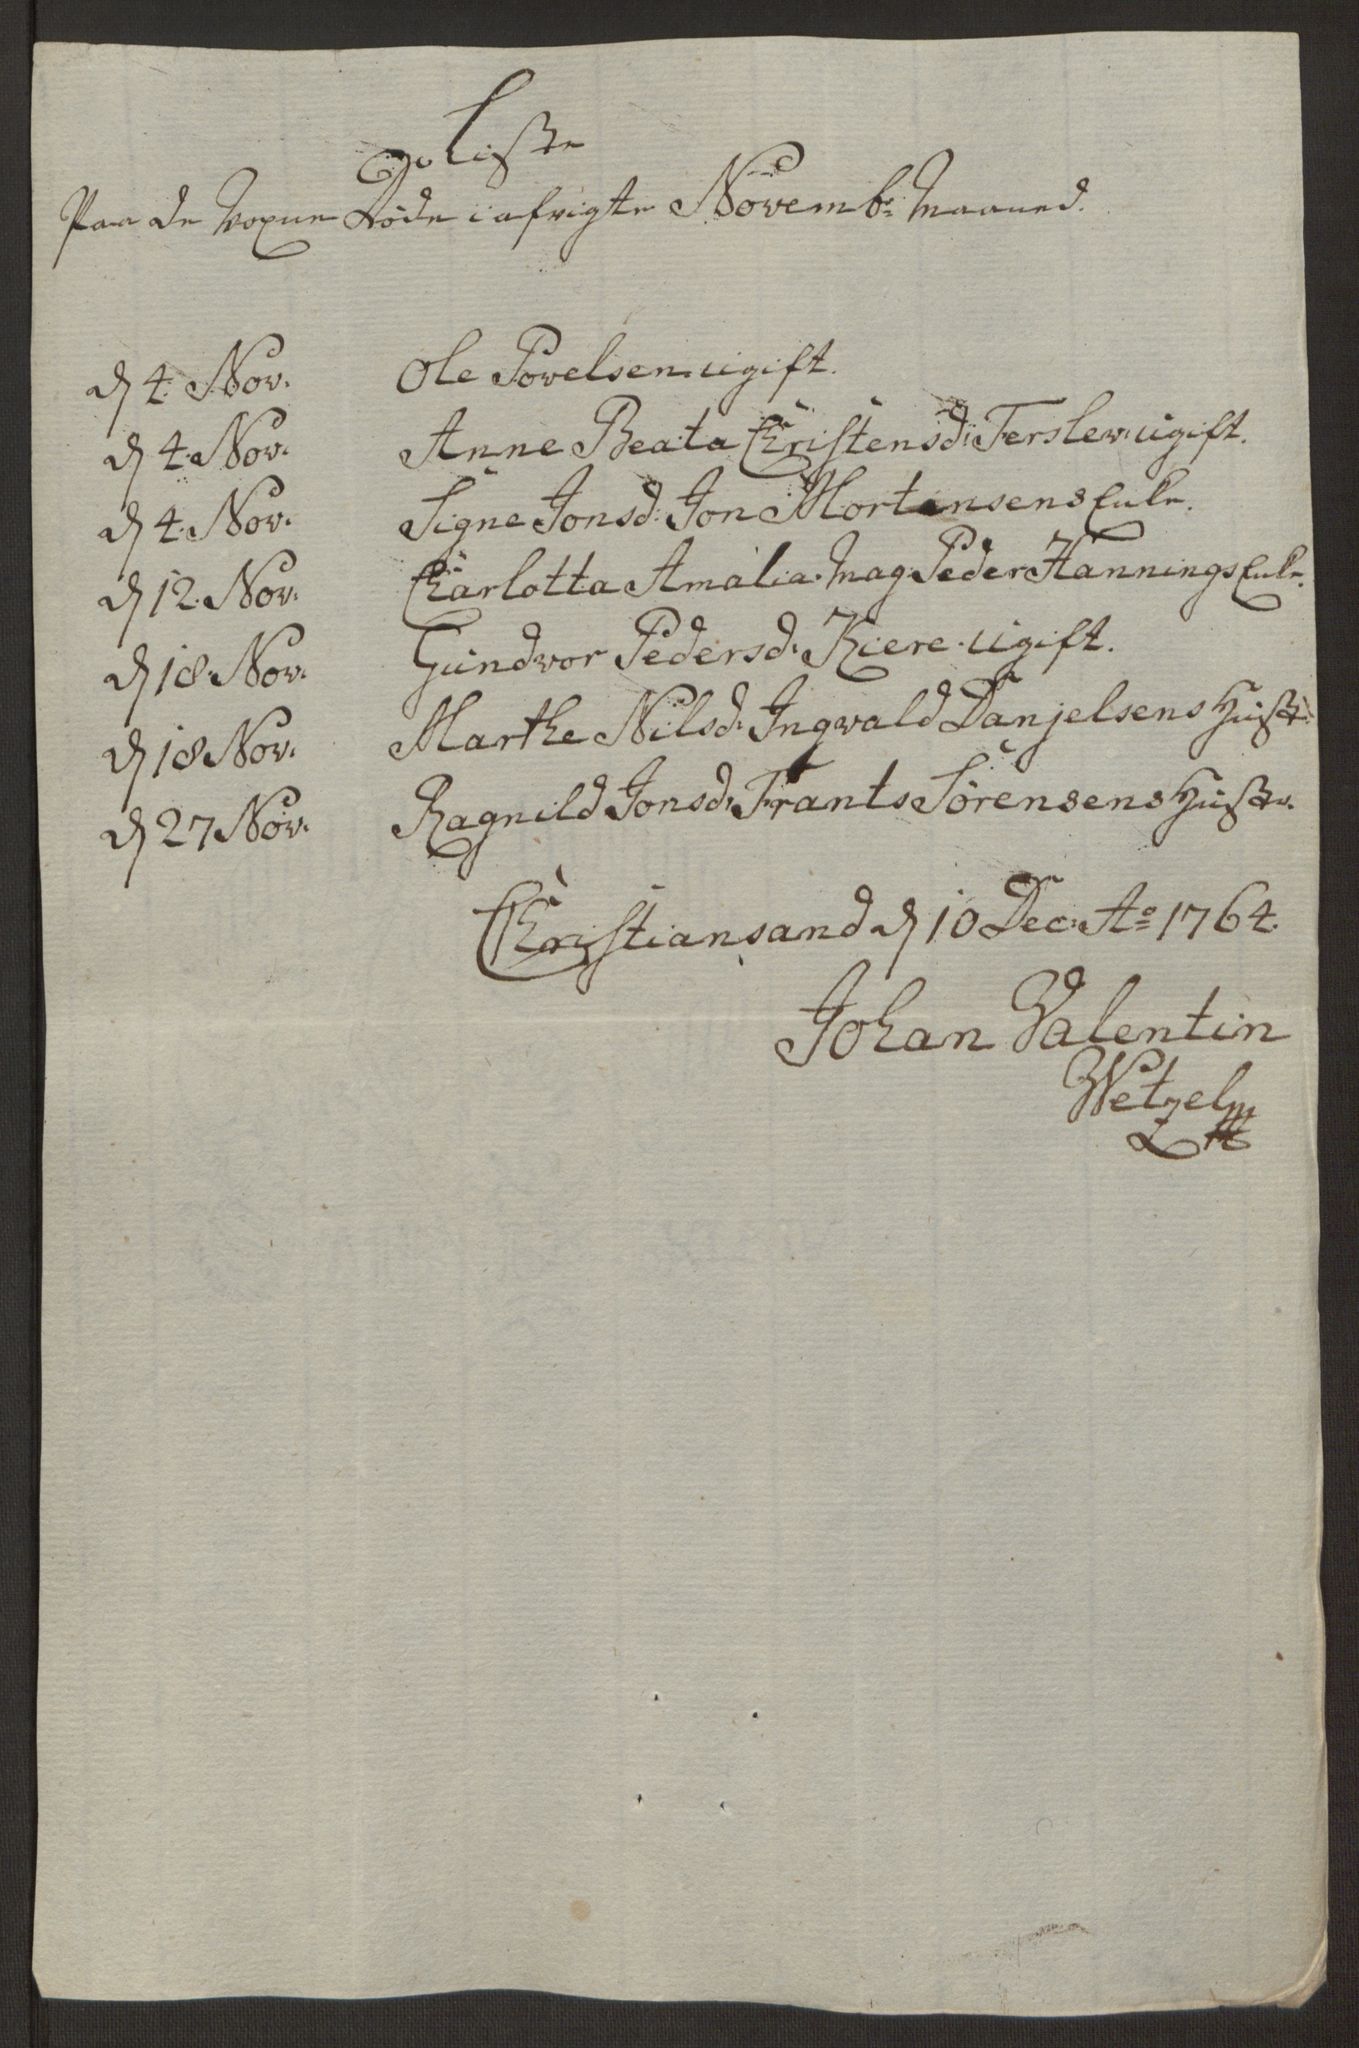 Liste
Paa de Voxne Døde i afvigte Novemb: Maaned.
d 4. Nov. Ole Povelsen. ugift.
d 4. Nov. Anne Beata Christensd: Terslev. ugift.
d 4. Nov. Signe Jonsd: Jon Mortensens Enke.
d 12. Nov. Charlotta Amalia. Mag: Peder Hannings Enke.
d 18. Nov. Gundvor Pedersd: Kiere. ugift.
d 18 Nov. Marthe Nilsd: Ingvald Danjelsens Hustr:
d 27 Nov. Ragnild Jonsd: Frants Sørensens Hustr.
Christiansand d 10 Dec: Ao 1764.
Johan Valentin
Wetzel